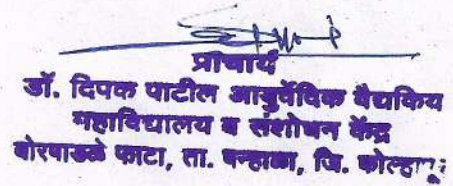 प्राचार्य
डॉ. दिपक पाटील आयुर्वेदिक वैद्यकिय
महाविद्यालय व संशोधन केंद्र
बोरपाडळे फाटा, ता. पन्हाळा, जि. कोल्हापूर